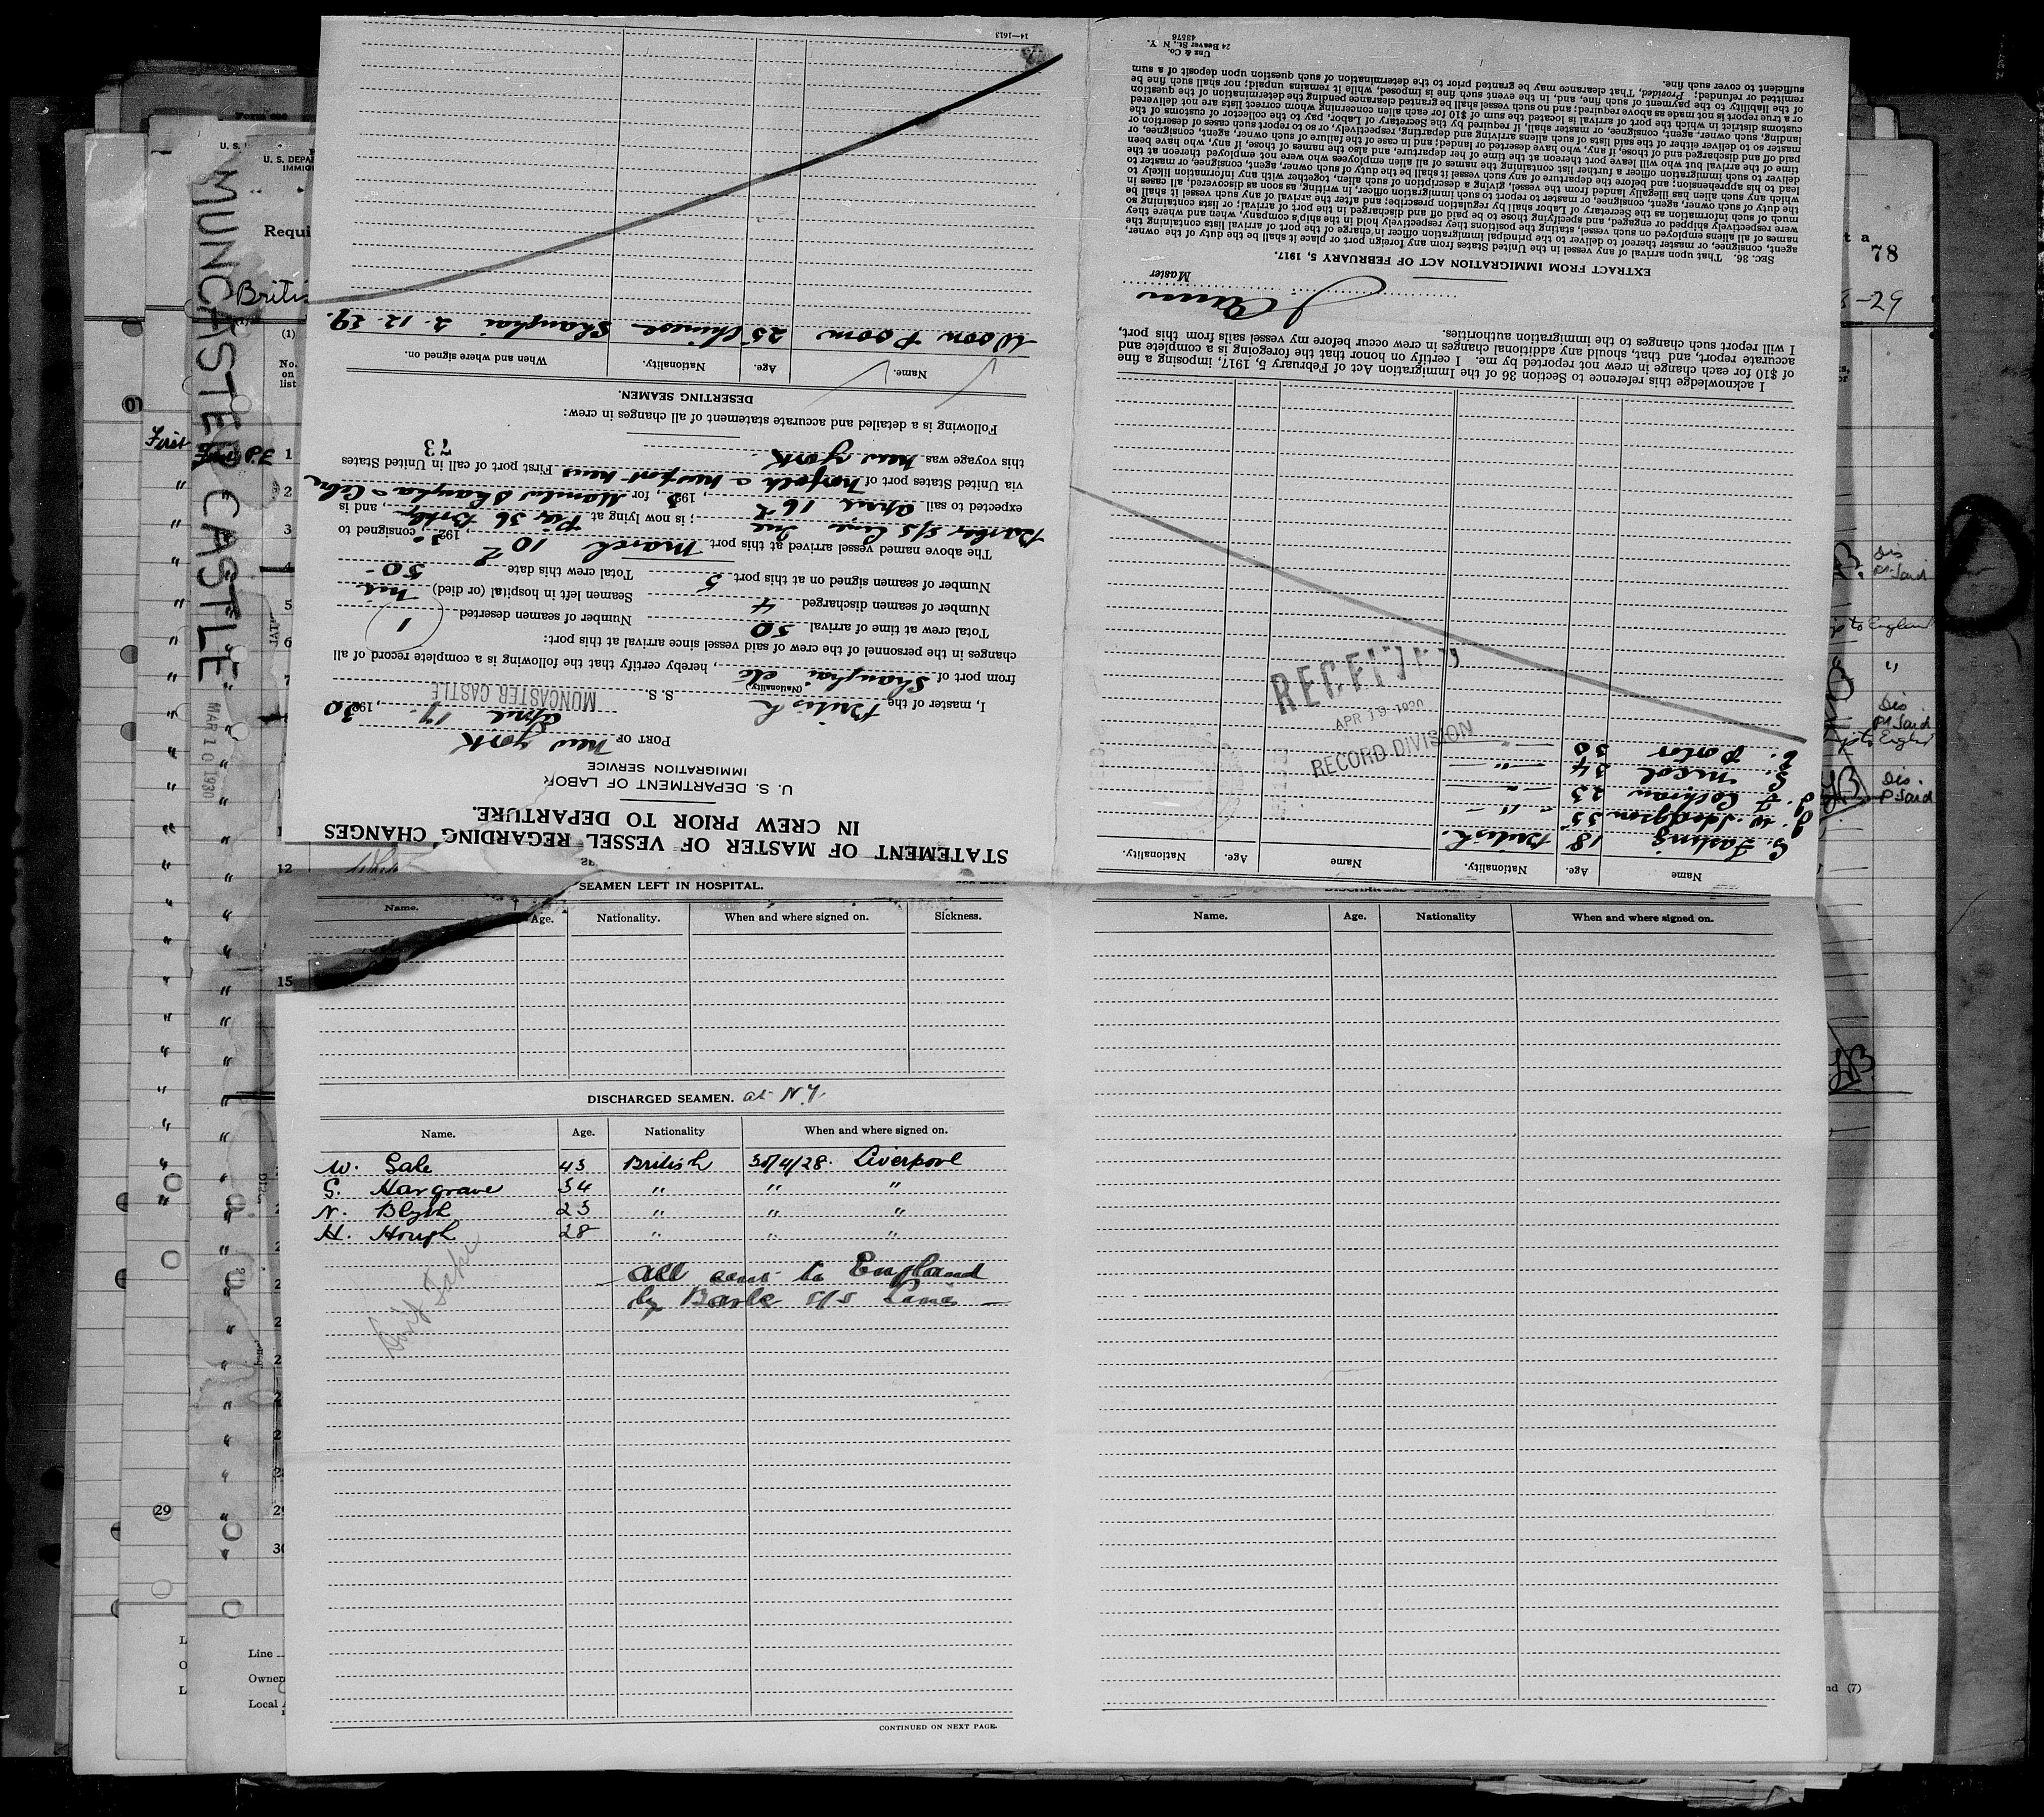 STATEMENT OF MASTER OF VESSEL REGARDING CHANGES
IN CREW PRIOR TO DEPARTURE.
U. S. DEPARTMENT OF LABOR
IMMIGRATION SERVICE
PORT OF New York
April 17, 1930
I, master of the British S. S. MUNCASTER CASTLE
(Nationality)
from port of Shanghai etc, hereby certify that the following is a complete record of all
changes in the personnel of the crew of said vessel since arrival at this port:
Total crew at time of arrival 50 Number of seamen deserted 1
Number of seamen discharged 4 Seamen left in hospital (or died) nil
Number of seamen signed on at this port 5 Total crew this date 50
The above named vessel arrived at this port March 10th, 1930, consigned to
Barber S/S Line Inc; is now lying at Pier 36 Bklyn, and is
expected to sail April 16th, 1923, for Manila Shanghai & Cebu
via United States port of Norfolk & Newport News First port of call in United States
this voyage was New York. 73
Following is a detailed and accurate statement of all changes in crew:
DESERTING SEAMEN.
Name. Age. Nationality. When and where signed on.
Woon Poom 25 Chinese Shanghai 2.12.29.
14—1613
SEAMEN LEFT IN HOSPITAL.
Name. Age. Nationality. When and where signed on. Sickness.
DISCHARGED SEAMEN. at N.Y.
Name. Age. Nationality When and where signed on.
W. Gale 43 British 30/11/28. Liverpool
G. Hargrave 34 " " "
N. Blyth 23 " " "
H. Hough 28 " " "
All sent to England
by Barber S/S Lines
CONTINUED ON NEXT PAGE.
Name. Age. Nationality When and where signed on.
Name Age. Nationality. Name Age. Nationality.
G. Fasting 18 British.
J. W. Hodgson 35 " "
J. F. Cochran 23 "
S. Nicol 34 "
E. Porter 30 "
RECEIVED
APR 19 1930
RECORD DIVISION
I acknowledge this reference to Section 36 of the Immigration Act of February 5, 1917, imposing a fine
of $10 for each change in crew not reported by me. I certify on honor that the foregoing is a complete and
accurate report, and that, should any additional changes in crew occur before my vessel sails from this port,
I will report such changes to the immigration authorities.
Master
EXTRACT FROM IMMIGRATION ACT OF FEBRUARY 5, 1917.
SEC. 36. That upon arrival of any vessel in the United States from any foreign port or place it shall be the duty of the owner,
agent, consignee, or master thereof to deliver to the principal immigration officer in charge of the port of arrival lists containing the
names of all aliens employed on such vessel, stating the positions they respectively hold in the ship's company, when and where they
were respectively shipped or engaged, and specifying those to be paid off and discharged in the port of arrival; or lists containing so
much of such information as the Secretary of Labor shall by regulation prescribe; and after the arrival of any such vessel it shall be
the duty of such owner, agent, consignee, or master to report to such immigration officer, in writing, as soon as discovered, all cases in
which any such alien has illegally landed from the vessel, giving a description of such alien, together with any information likely to
lead to his apprehension; and before the departure of any such vessel it shall be the duty of such owner, agent, consignee, or master to
deliver to such immigration officer a further list containing the names of all alien employees who were not employed thereon at the
time of the arrival but who will leave port thereon at the time of her departure, and also the names of those, if any, who have been
paid off and discharged and of those, if any, who have deserted or landed; and in case of the failure of such owner, agent, consignee, or
master so to deliver either of the said lists of such aliens arriving and departing, respectively, or so to report such cases of desertion or
landing, such owner, agent, consignee, or master shall, if required by the Secretary of Labor, pay to the collector of customs of the
customs district in which the port of arrival is located the sum of $10 for each alien concerning whom correct lists are not delivered
or a true report is not made as above required; and no such vessel shall be granted clearance pending the determination of the question
of the liability to the payment of such fine, and, in the event such fine is imposed, while it remains unpaid; nor shall such fine be
remitted or refunded; Provided, That clearance may be granted prior to the determination of such question upon deposit of a sum
sufficient to cover such fine.
Unz & Co.
24 Beaver St., N. Y.
43576
MUNCASTER CASTLE
MAR 10 1930
U. S. DEPA
IMMIG
Requi
Britis
(1)
No.
on
list
First
1
2
3
5
6
12
15
29
30
Line
Owner
Local
78
-29
Dis
Pt Said
to England
"
Dis.
Pt Said
to Englnd
Dis.
P Said
nd (7)